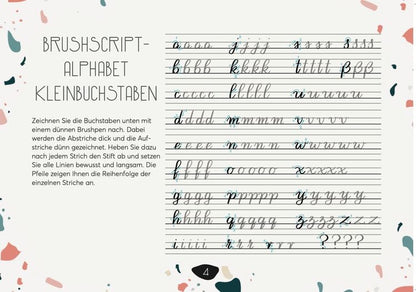 BRUSHSCRIPT-
ALPHABET
KLEINBUCHSTABEN
Zeichnen Sie die Buchstaben unten mit
einem dünnen Brushpen nach. Dabei
werden die Abstriche dick und die Auf-
striche dünn gezeichnet. Heben Sie dazu
nach jedem Strich den Stift ab und setzen
Sie alle Linien bewusst und langsam. Die
Pfeile zeigen Ihnen die Reihenfolge der
einzelnen Striche an.
a a a a a j j j j j s s s s s s s s s
b b b b b k k k k k t t t t t β β β β
c c c c c l l l l l u u u u u
d d d d d m m m m v v v v v
e e e e e n n n n n w w w w
f f f f f o o o o o x x x x x
g g g g g p p p p p y y y y y
h h h h h q q q q q z z z z z z z z
i i i i i r r r r r r r ? ? ? ?
4